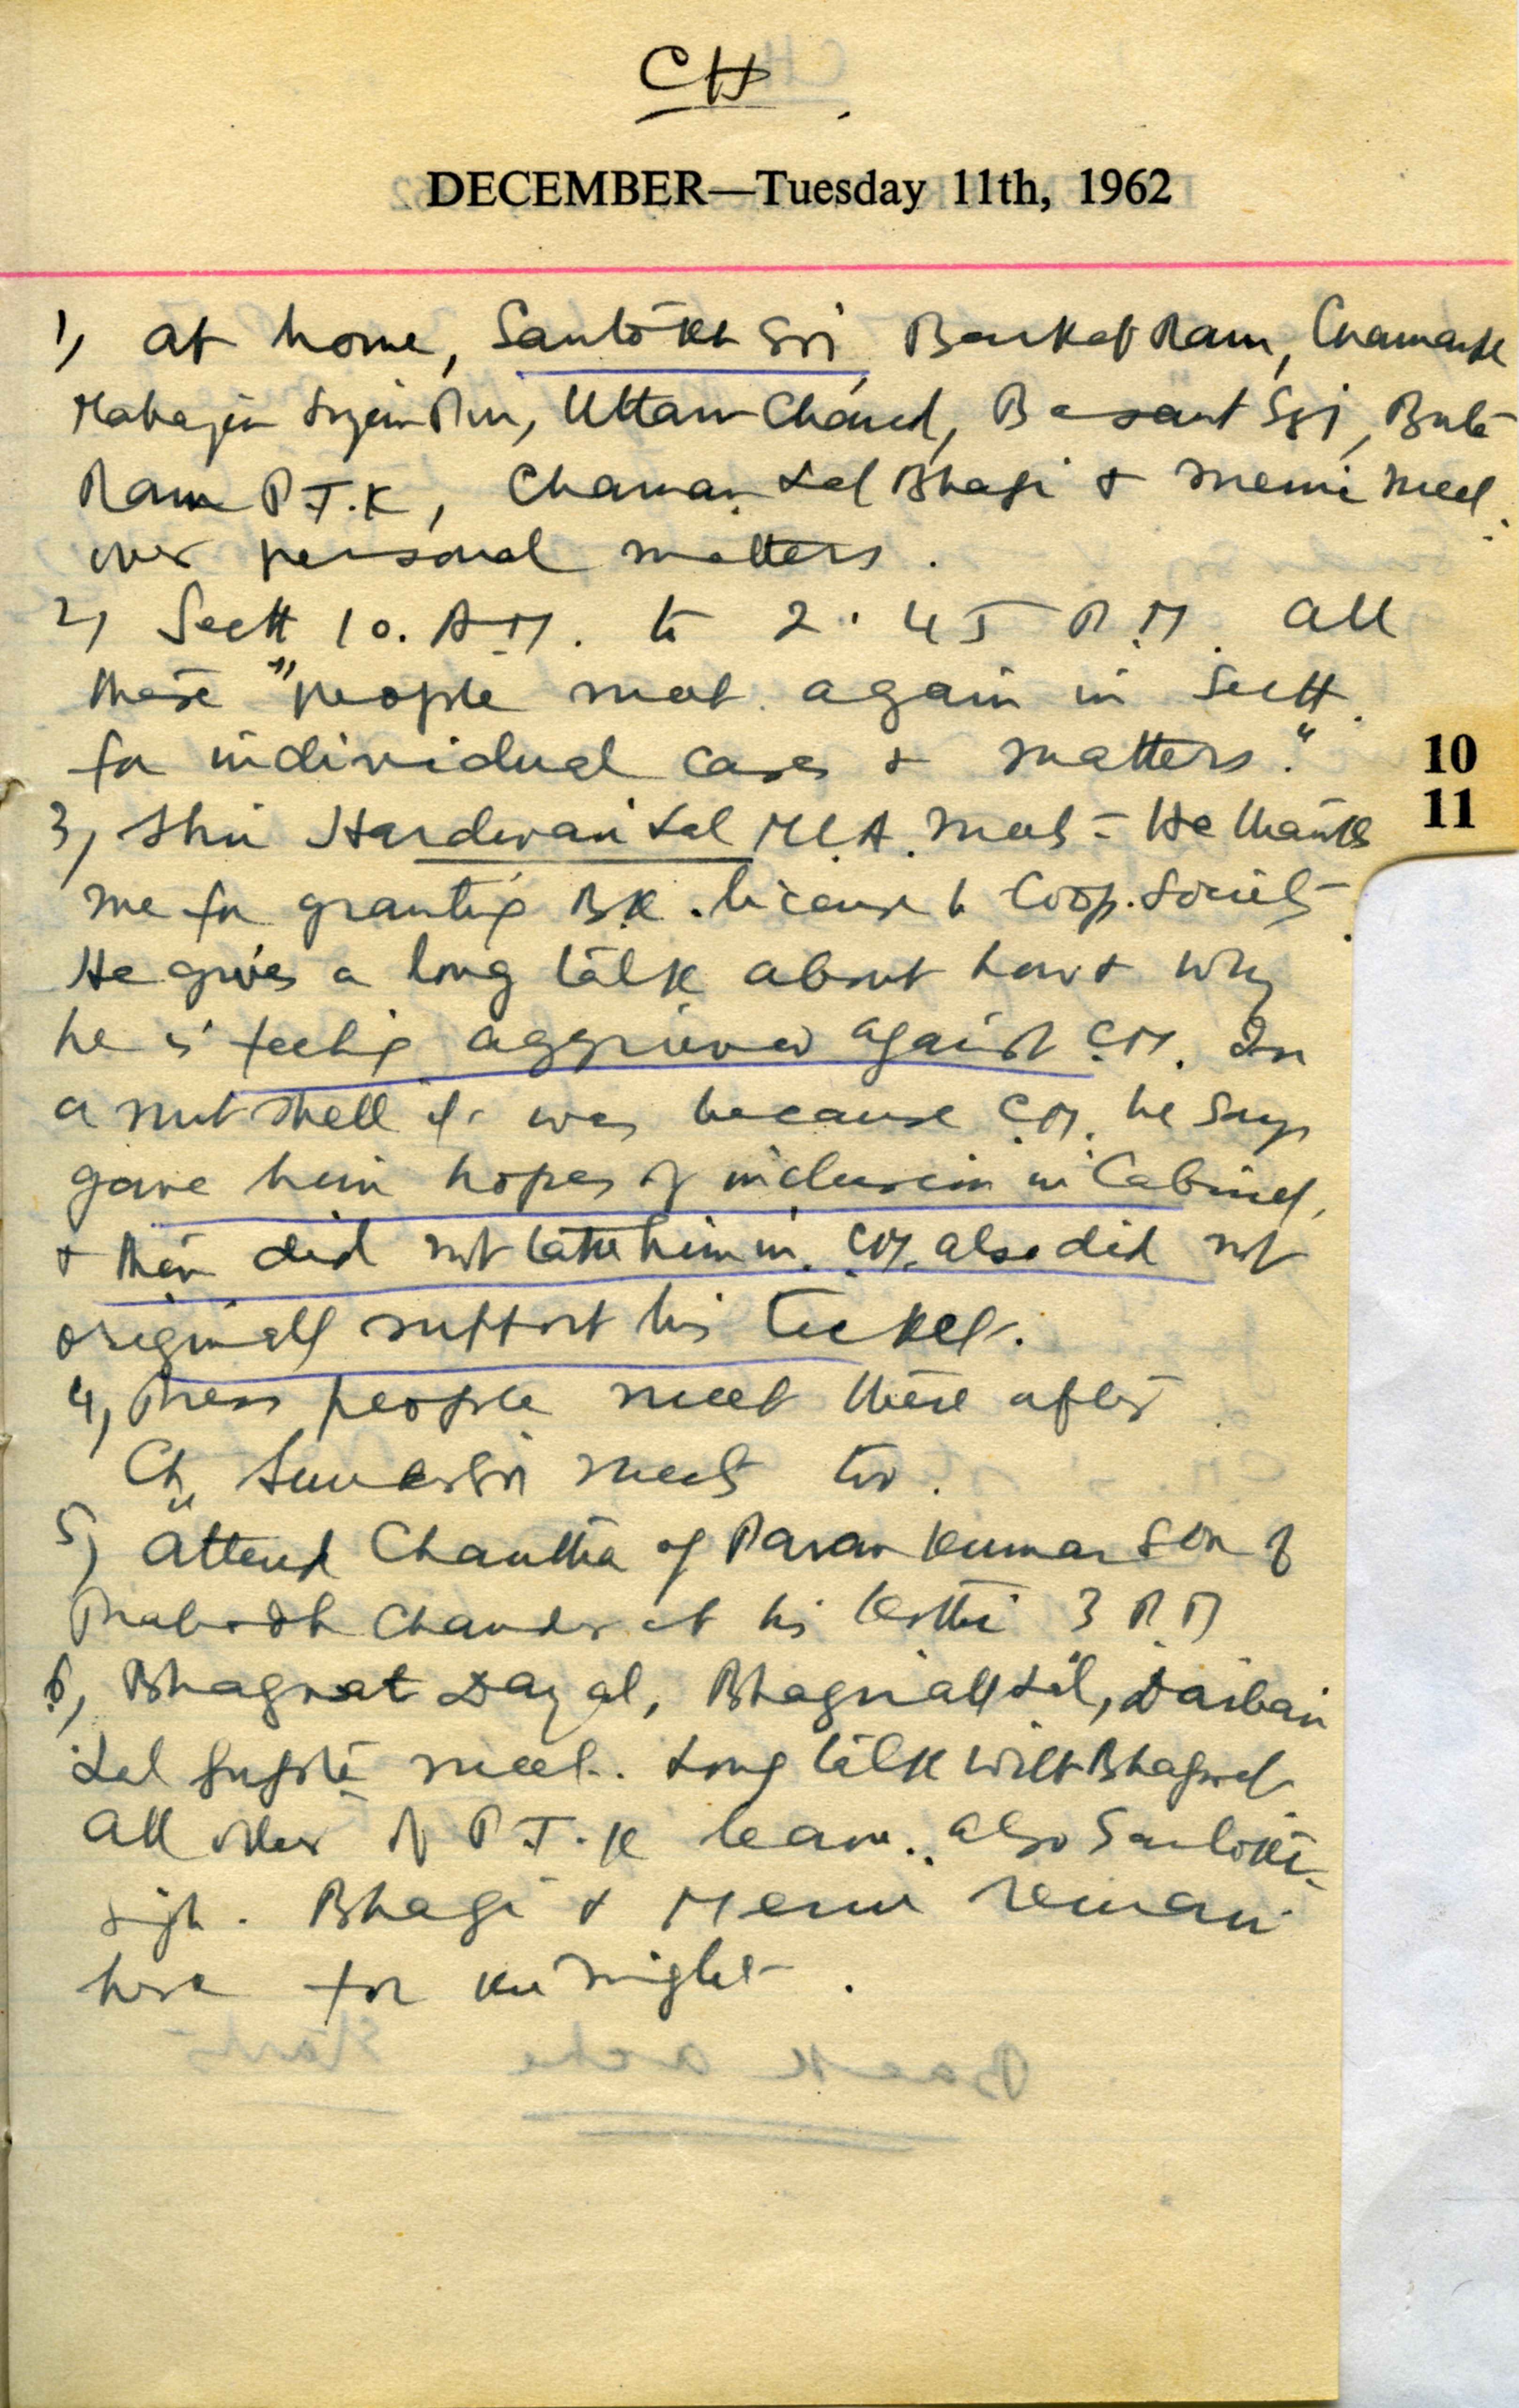 CH
DECEMBER—Tuesday 11th, 1962
1) at home, Santokh Sgi, Barkat Ram,
Mahajan, Uttam Chand, Basant Sgi,
Ram P.T.K, Chaman Lal Bhagi + meet
over personal matters.
2) Sectt 10. A.M. to 2.45 P.M. All
these "people meet again in Sectt.
for individual cases + matters."
10
3) Shri Hardwari Lal M.L.A. meets - He thanks
11
me for granting B.K. license to Coop. Society.
He gives a long talk about how + why
he is feeling aggrieved against C.M. In
a nut shell it was because C.M. he says
gave him hopes of inclusion in Cabinet,
+ then did not take him in. C.M. also did not
originally support his ticket.
4) Press people meet there after
Ch. meets too.
5) Attend Chautha of Pavan Kumar son of
Prabodh Chander at his Kothi 3 P.M
6) Bhagwat Dayal, Lal, Darbari
Lal Gupta meet. Long talk with Bhagwat
All other of P.T.K leave. also Santokh
Singh. Bhagi + remain
here for the night.